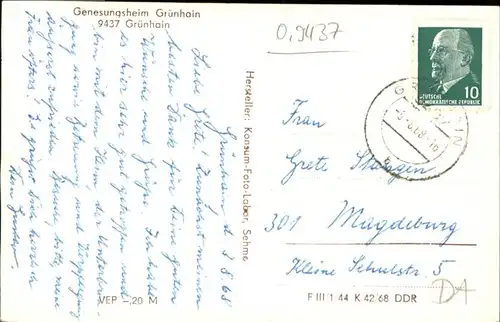 Genesungsheim Grünhain
9437 Grünhain
0,9437
Grünhain, d. 3.8.68
Liebe Grete! Zunächst meinen
besten Dank für Deine guten
Wünsche und Grüße. Ich habe
es hier sehr gut getroffen und
bin mit dem Heim der Unterbrin-
gung sowie Betreuung und Verpflegung
äußerst zufrieden.
Es grüßt Dich herzlich
Hersteller: Konsum-Foto-Labor, Sehma
VEP -,20 M
DEUTSCHE
DEMOKRATISCHE REPUBLIK
10
Frau
Grete Stangen
301 Magdeburg
Kleine Schulstr. 5
F III 1 44 K 42 68 DDR
DA